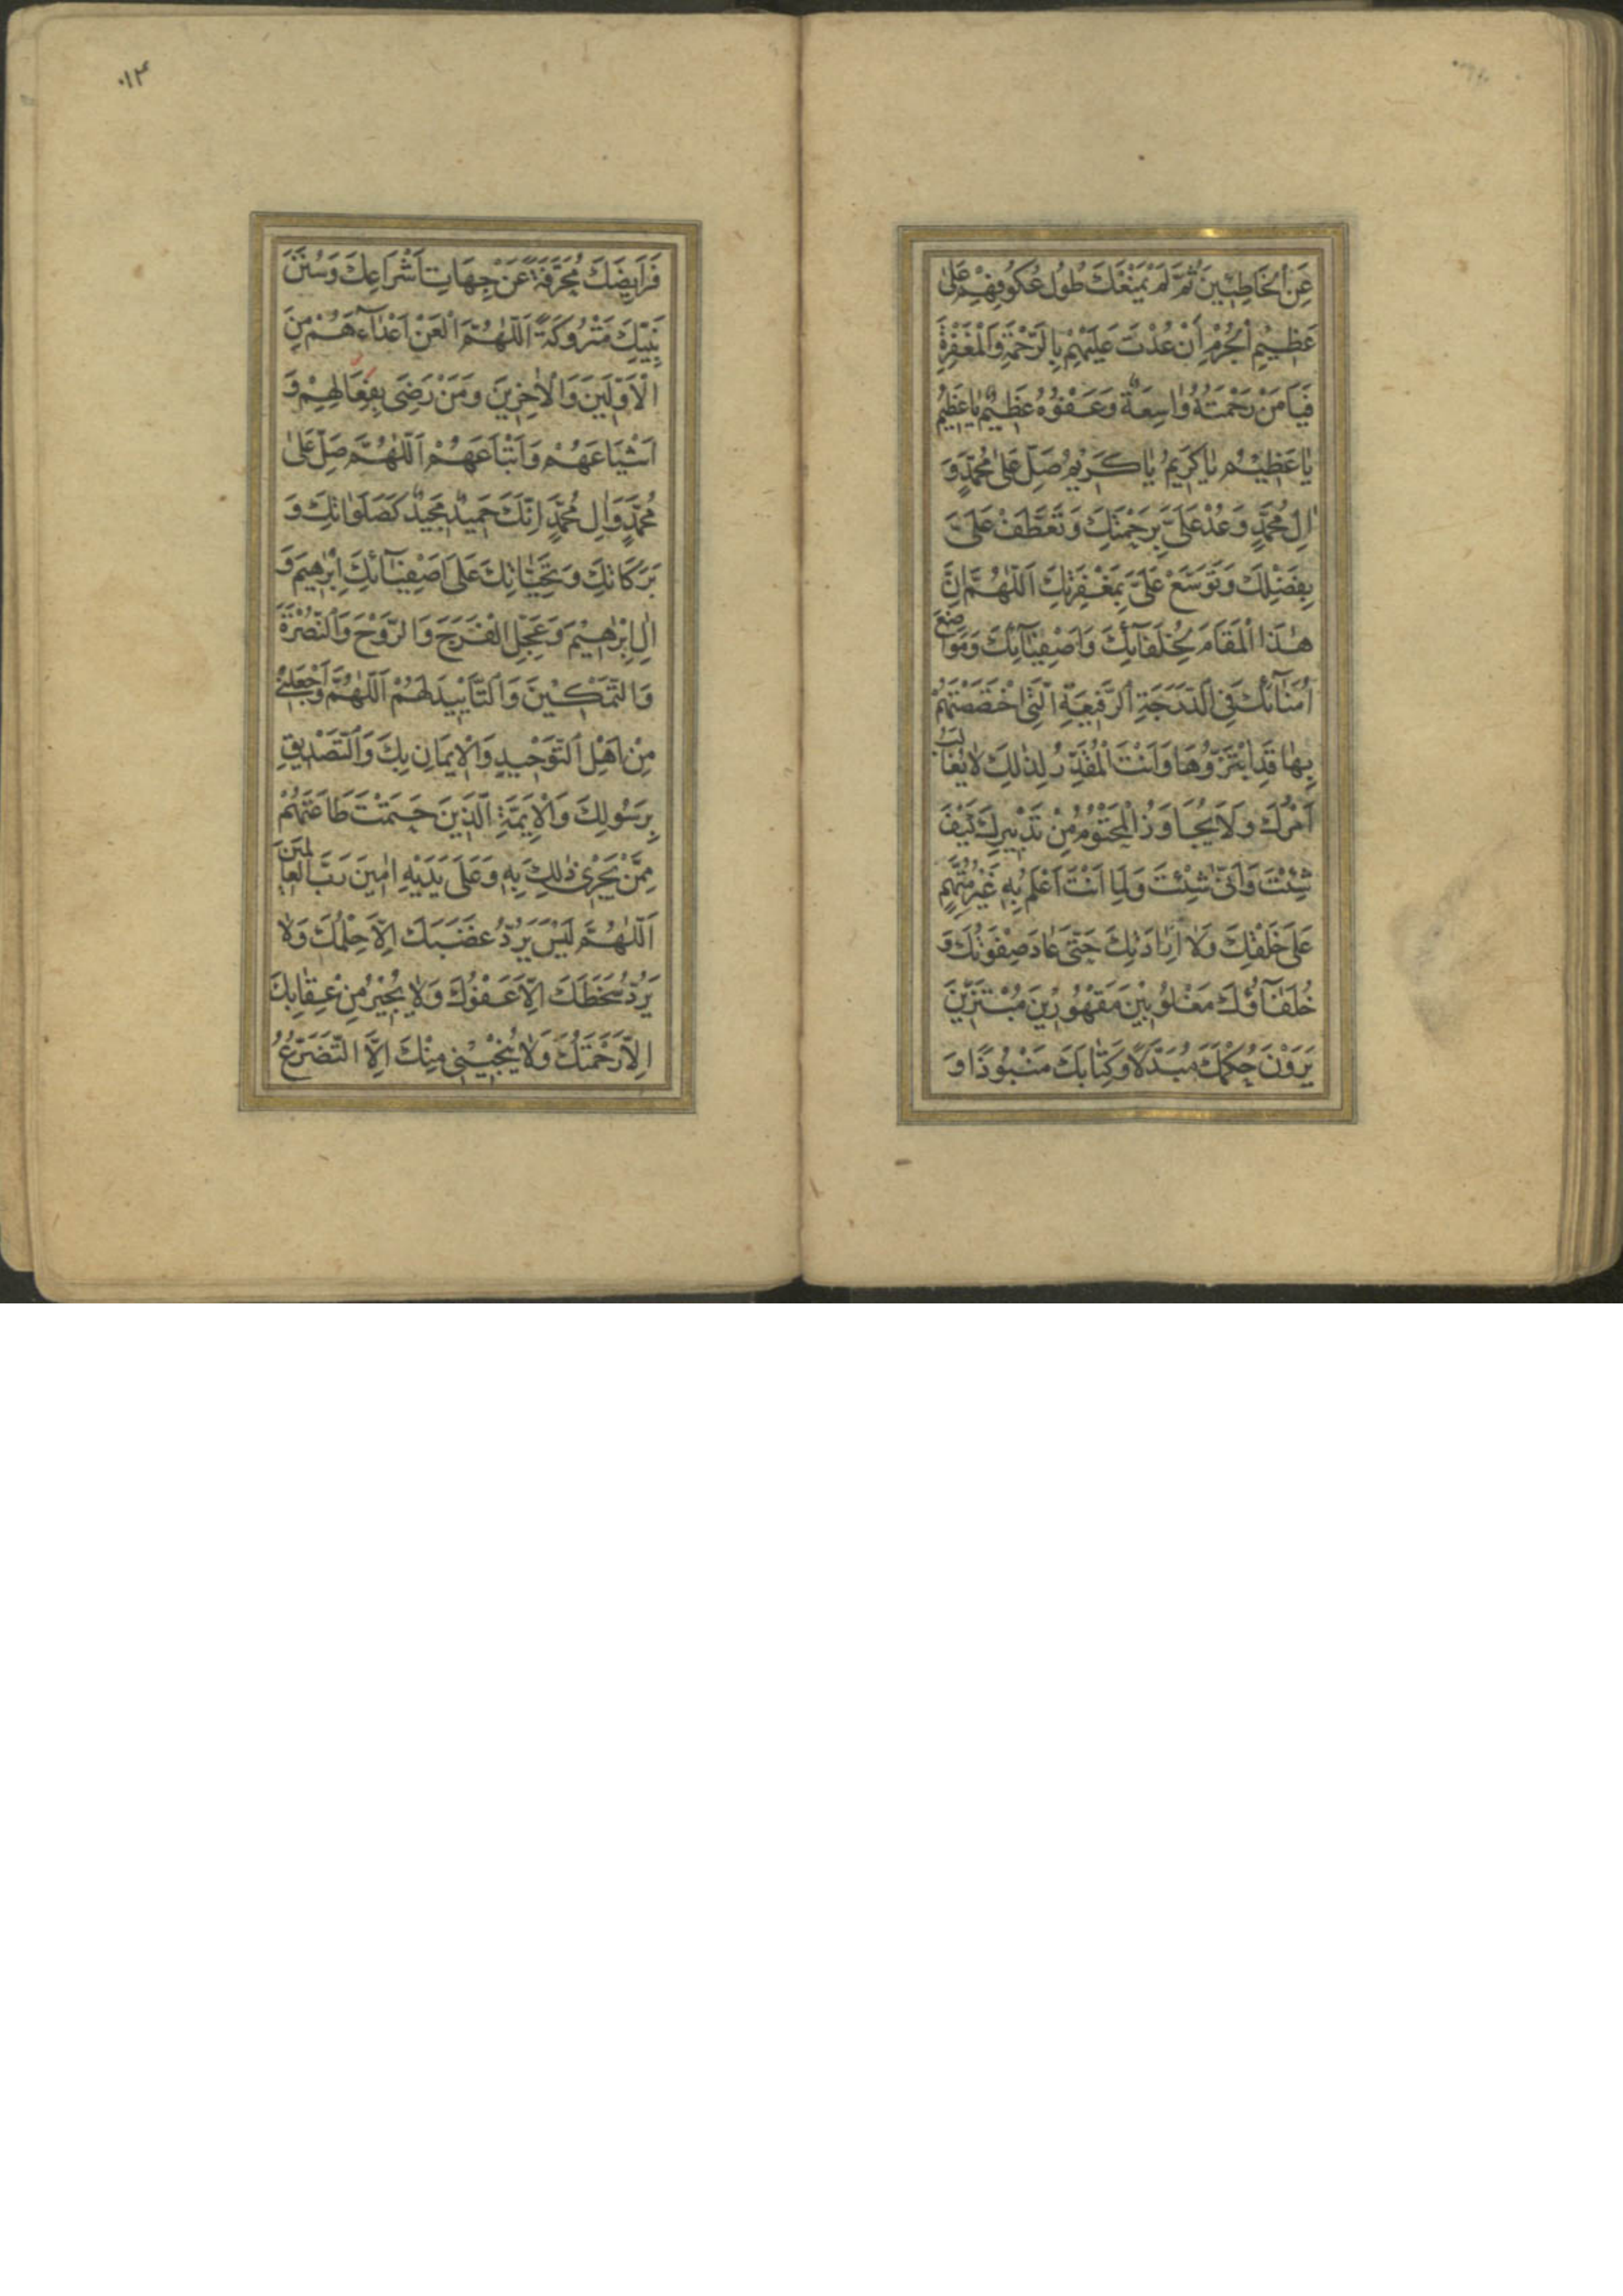 عَنِ الْخَاطِئِينَ ثُمَّ لَمْ يَمْنَعْكَ طُولُ عُكُوفِهِمْ عَلىٰ
عَظِيمِ الْجُرْمِ اَنْ عُدْتَ عَلَيْهِمْ بِالرَّحْمَةِ وَالْمَغْفِرَةِ
فَيَا مَنْ رَحْمَتُهُ وٰاسِعَةٌ وَعَفْوُهُ عَظِيمٌ يٰا عَظِيمُ
يٰا عَظِيمُ يٰا كَرِيمُ يٰا كَرِيمُ صَلِّ عَلىٰ مُحَمَّدٍ وَ
اٰلِ مُحَمَّدٍ وَعُدْ عَلَيَّ بِرَحْمَتِكَ وَتَعَطَّفْ عَلَيَّ
بِفَضْلِكَ وَتَوَسَّعْ عَلَيَّ بِمَغْفِرَتِكَ اَللّٰهُمَّ اِنَّ
هٰذَا الْمَقَامَ لِخُلَفَائِكَ وَاَصْفِيَائِكَ وَمَوَاضِعَ
اُمَنَائِكَ فِي الدَّرَجَةِ الرَّفِيعَةِ الَّتِي اخْتَصَصْتَهُمْ
بِهٰا قَدِ ابْتَزُّوهٰا وَاَنْتَ الْمُقَدِّرُ لِذٰلِكَ لٰا يُغَالَبُ
اَمْرُكَ وَلَا يُجَاوَزُ الْمَحْتُومُ مِنْ تَدْبِيرِكَ كَيْفَ
شِئْتَ وَاَنّٰى شِئْتَ وَلِمَا اَنْتَ اَعْلَمُ بِهِ غَيْرُ مُتَّهَمٍ
عَلىٰ خَلْقِكَ وَلٰا لِاِرَادَتِكَ حَتّىٰ عٰادَ صِفْوَتُكَ وَ
خُلَفَاؤُكَ مَغْلُوبِينَ مَقْهُورِينَ مُبْتَزِّينَ
يَرَوْنَ حُكْمَكَ مُبَدَّلًا وَكِتٰابَكَ مَنْبُوذًا وَ
۰۱۴
فَرَايِضَكَ مُحَرَّفَةً عَنْ جِهَاتِ اَشْرَاعِكَ وَسُنَنَ
نَبِيِّكَ مَتْرُوكَةً اَللّٰهُمَّ الْعَنْ اَعْدَاءَهُمْ مِنَ
الْاَوَّلِينَ وَالْاٰخِرِينَ وَمَنْ رَضِيَ بِفِعَالِهِمْ وَ
اَشْيَاعَهُمْ وَاَتْبَاعَهُمْ اَللّٰهُمَّ صَلِّ عَلىٰ
مُحَمَّدٍ وَاٰلِ مُحَمَّدٍ اِنَّكَ حَمِيدٌ مَجِيدٌ كَصَلَوٰاتِكَ وَ
بَرَكَاتِكَ وَتَحِيَّاتِكَ عَلىٰ اَصْفِيَائِكَ اِبْرٰهِيمَ وَ
اٰلِ اِبْرٰهِيمَ وَعَجِّلِ الْفَرَجَ وَالرَّوْحَ وَالنُّصْرَةَ
وَالتَّمْكِينَ وَالتَّأْيِيدَ لَهُمْ اَللّٰهُمَّ وَاجْعَلْنِي
مِنْ اَهْلِ التَّوْحِيدِ وَالْاِيمَانِ بِكَ وَالتَّصْدِيقِ
بِرَسُولِكَ وَالْاَئِمَّةِ الَّذِينَ حَتَمْتَ طَاعَتَهُمْ
مِمَّنْ يَجْرِي ذٰلِكَ بِهِ وَعَلىٰ يَدَيْهِ اٰمِينَ رَبَّ الْعٰالَمِينَ
اَللّٰهُمَّ لَيْسَ يَرُدُّ غَضَبَكَ اِلَّا حِلْمُكَ وَلٰا
يَرُدُّ سَخَطَكَ اِلَّا عَفْوُكَ وَلٰا يُجِيرُ مِنْ عِقٰابِكَ
اِلَّا رَحْمَتُكَ وَلٰا يُنْجِينِي مِنْكَ اِلَّا التَّضَرُّعُ